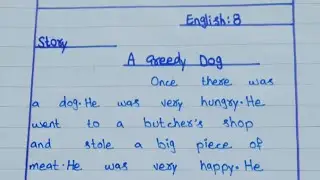 English:8
Story
A Greedy Dog
Once there was
a dog. He was very hungry. He
went to a butcher's shop
and stole a big piece of
meat. He was very happy. He